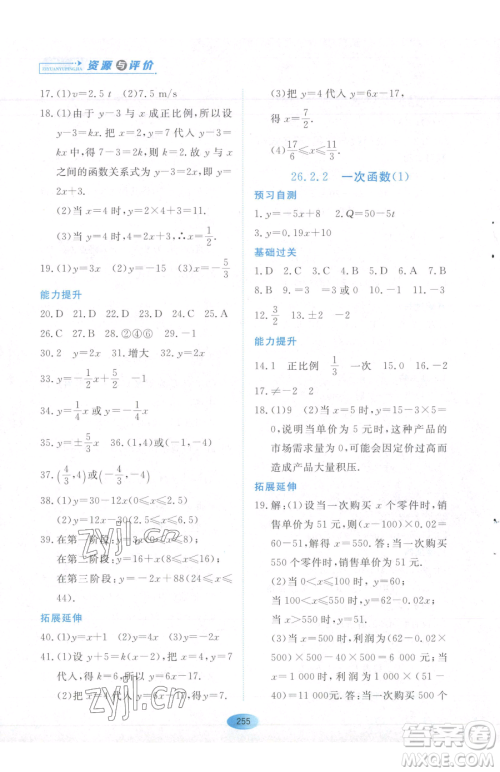 资源与评价
17.(1)v=2.5t (2)7.5 m/s
18.(1)由于 y-3 与 x 成正比例,所以设
y-3=kx.把 x=2,y=7 代入 y-3=kx
中,得 7-3=2k,解得 k=2.故 y 与 x 之
间的函数关系式为 y-3=2x,即 y=
2x+3.
(2)当 x=4 时,y=2×4+3=11.
(3)当 y=4 时,4=2x+3,∴x=1/2.
19.(1)y=3x (2)y=-15 (3)x=-5/3
能力提升
20.D 21.D 22.B 23.A 24.C 25.A
26.C 27.B 28.②④⑥ 29.2
30.y=2x 31.增大 32.y=2x
33.y=-1/2x+1/2
34.y=1/4x或y=-1/4x
35.y=±5/3x
37.(4/3,4)或(-4/3,4)
38.(1)y=30-12x(0≤x≤2.5)
(2)y=12x-30(2.5≤x≤5)
39.在第一阶段:y=3x(0≤x≤8)
在第二阶段:y=16+x(8≤x≤16)
在第三阶段:y=-2x+88(24≤x≤
44).
拓展延伸
40.(1)y=x+1 (2)y=-x+5
41.(1)设 y+5=k(x-2),把 x=4,y=7
代入,得 k=6,所以 y=6x-17.
(2)把 x=1 代入 y=6x-17,得 y=
-11.
(3)把 y=4 代入 y=6x-17,
得 x=7/2.
(4)17/6≤x≤11/3
26.2.2 一次函数(1)
预习自测
1.y=-5x+8 2.Q=50-5t
3.y=0.19x+10
基础过关
1.D 2.C 3.D 4.B 5.A 6.D 7.D
8.D 9.B 10.A 11.A
12.3/2 13.±2
能力提升
14.1 正比例 1/3 一次 15.0 16.-2
17.≠-2 2
18.(1)9 (2)当 x=5 时,y=15-3×5=
0.说明当销售单价为 5 元时,这种产品的
市场需求量为 0,即这种产品定价过高而
造成产品大量积压.
拓展延伸
19.解:(1)设当一次购买 x 个零件时,销
售单价为 51 元,则(x-100)×0.02=
60-51,解得 x=550.答:当一次购买
550 个零件时,销售单价为 51 元.
(2)当 0<x≤100 时,y=60;当
100<x<550 时,y=62-0.02x;当
x≥550 时,y=51.
(3)当 x=500 时,利润为(62-0.02×
500)×500-40×500=6 000 元;当 x=
1 000 时,利润为 1 000×(51-40)=
11 000 元.答:当一次购买 500 个零件
zyjl.cn
zyjl.cn
255
答案圈
MXQE.COM